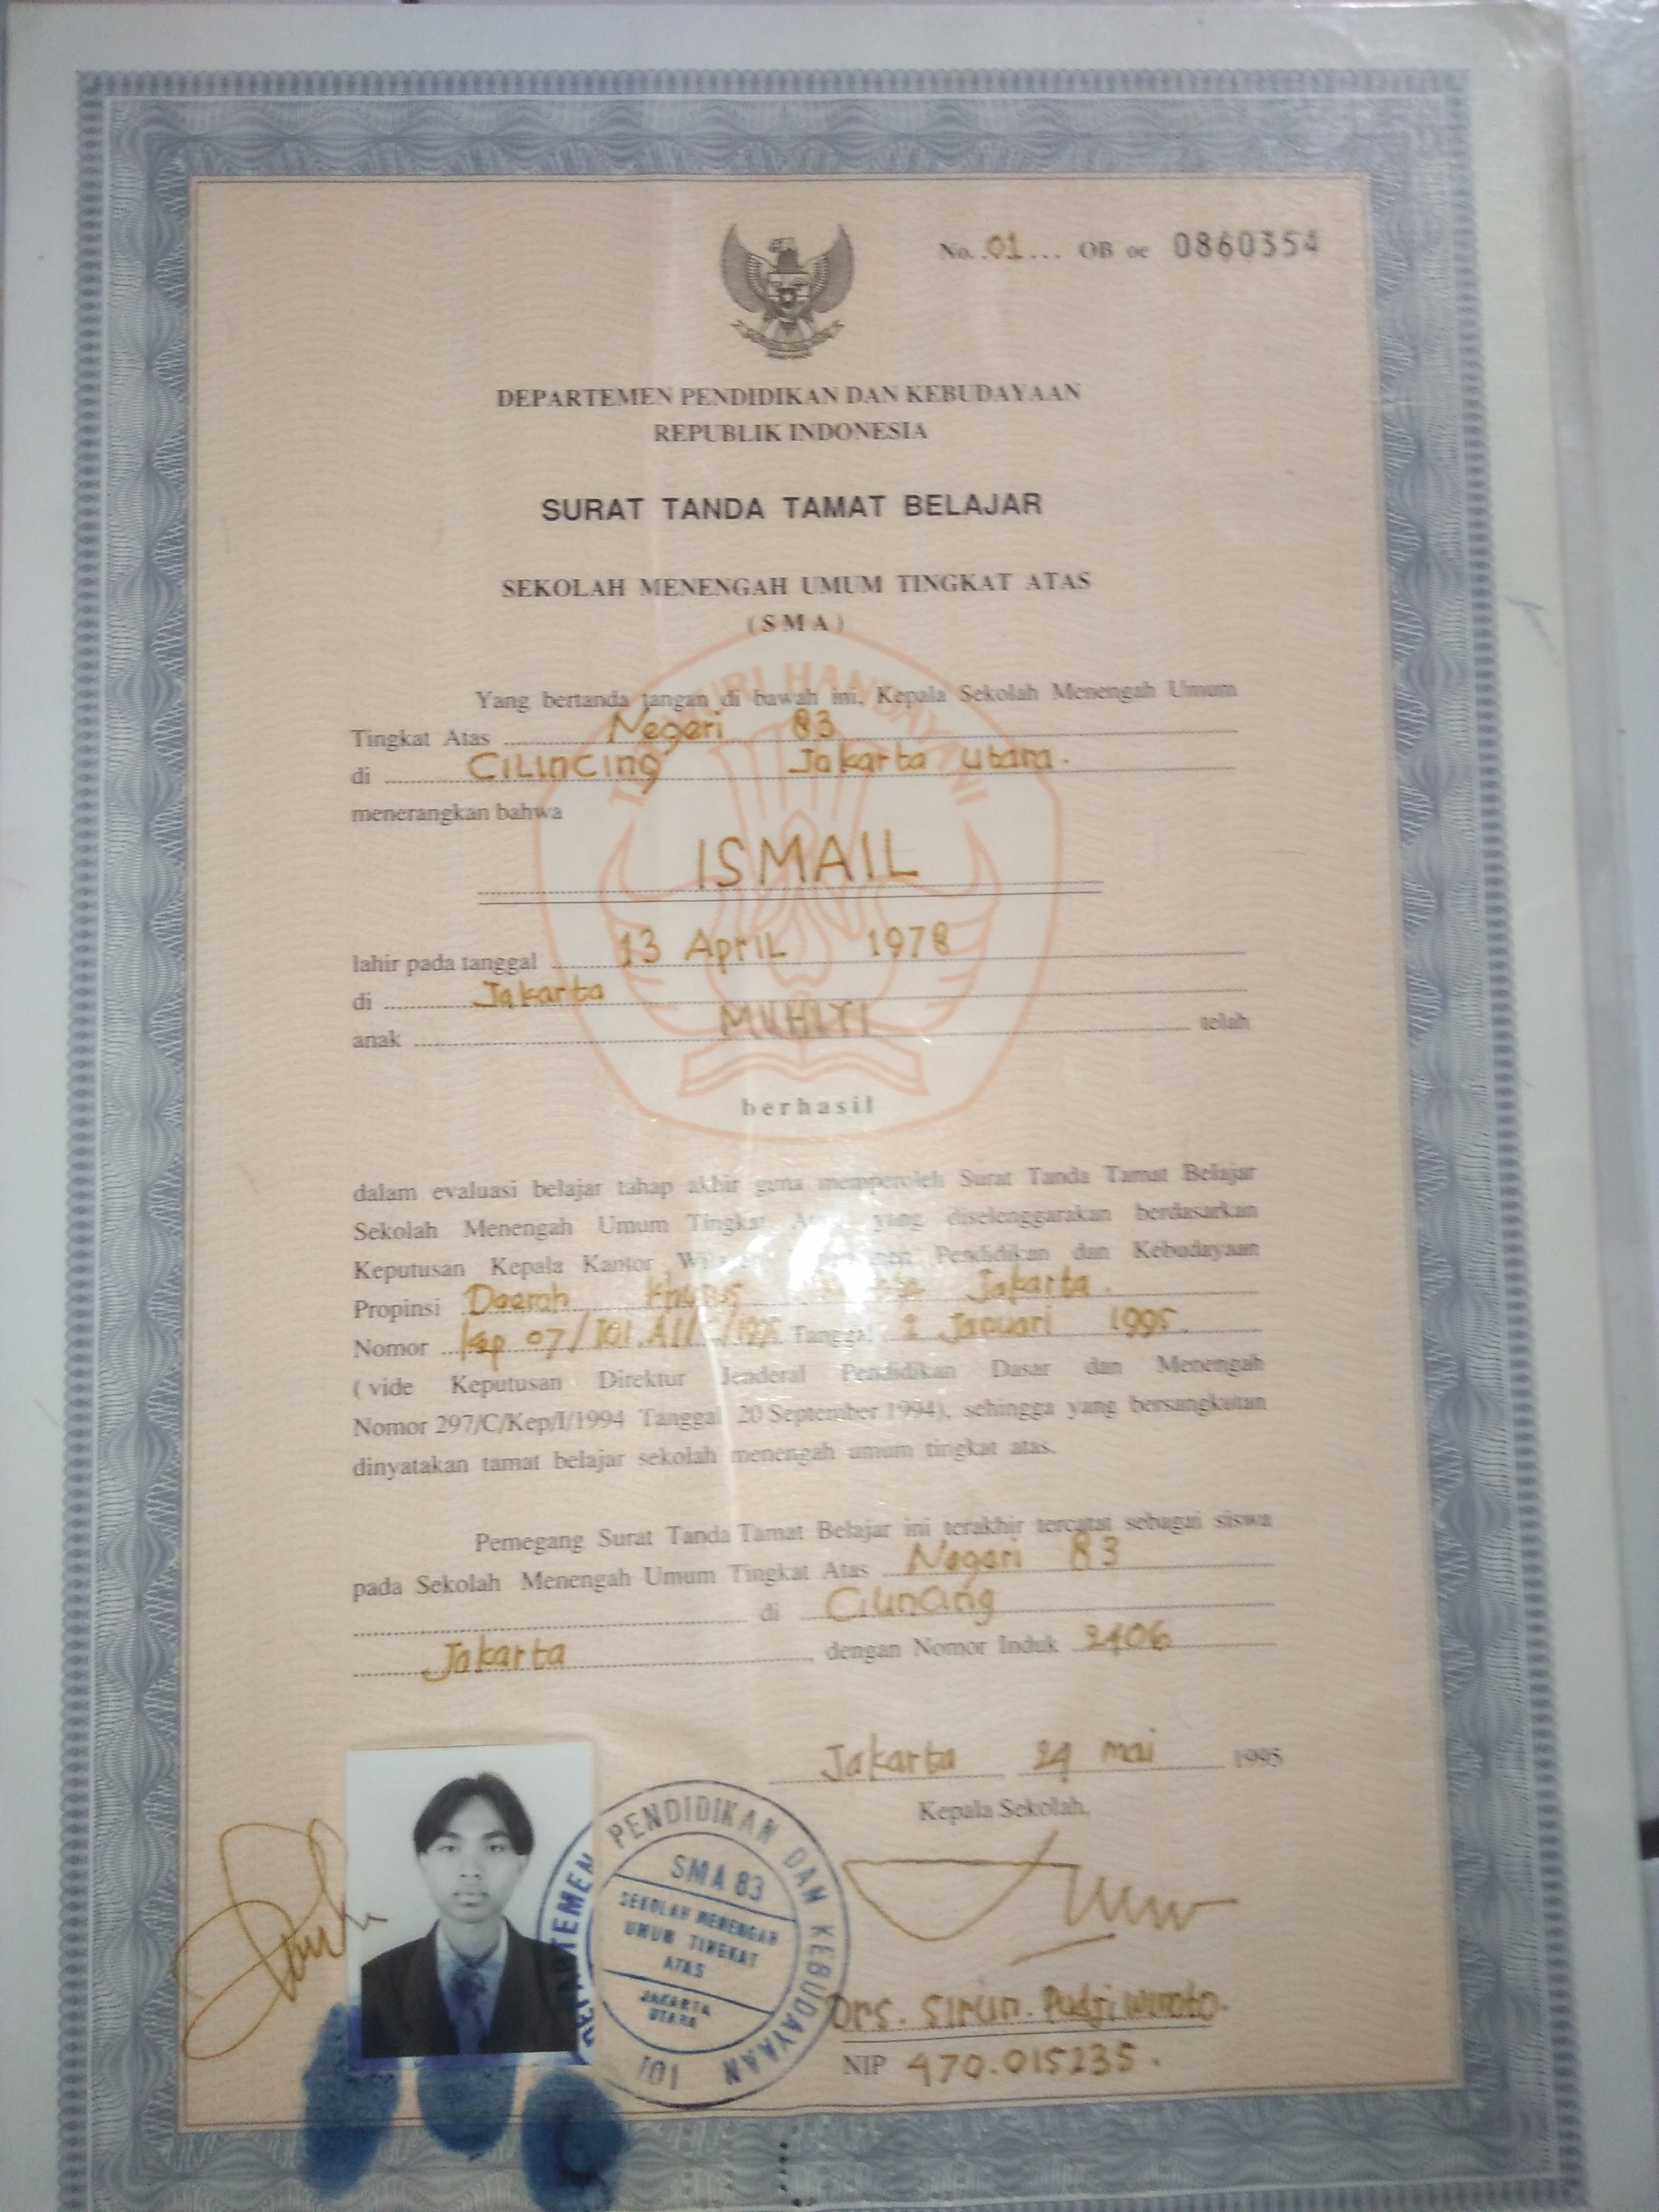 No. 01 ... OB oe 0860354
DEPARTEMEN PENDIDIKAN DAN KEBUDAYAAN
REPUBLIK INDONESIA
SURAT TANDA TAMAT BELAJAR
SEKOLAH MENENGAH UMUM TINGKAT ATAS
(SMA)
Yang bertanda tangan di bawah ini, Kepala Sekolah Menengah Umum
Tingkat Atas Negeri 83
di CILINCING Jakarta Utara.
menerangkan bahwa
ISMAIL
lahir pada tanggal 13 April 1978
di Jakarta
anak telah
berhasil
dalam evaluasi belajar tahap akhir guna memperoleh Surat Tanda Tamat Belajar
Sekolah Menengah Umum Tingkat yang diselenggarakan berdasarkan
Keputusan Kepala Kantor Pendidikan dan Kebudayaan
Propinsi Daerah Khusus Jakarta.
Nomor Kep 07/ Tanggal 2 Januari 1995.
( vide Keputusan Direktur Jenderal Pendidikan Dasar dan Menengah
Nomor 297/C/Kep/I/1994 Tanggal 20 September 1994), sehingga yang bersangkutan
dinyatakan tamat belajar sekolah menengah umum tingkat atas.
Pemegang Surat Tanda Tamat Belajar ini terakhir tercatat sebagai siswa
pada Sekolah Menengah Umum Tingkat Atas Negeri 83
di Cilincing
Jakarta, dengan Nomor Induk 2406
Jakarta 24 mai 1995
Kepala Sekolah,
DEPARTEMEN PENDIDIKAN DAN KEBUDAYAAN
SMA 83
SEKOLAH MENENGAH
UMUM TINGKAT
ATAS
JAKARTA
UTARA
101
Drs. Sirun.
NIP 470.015235.